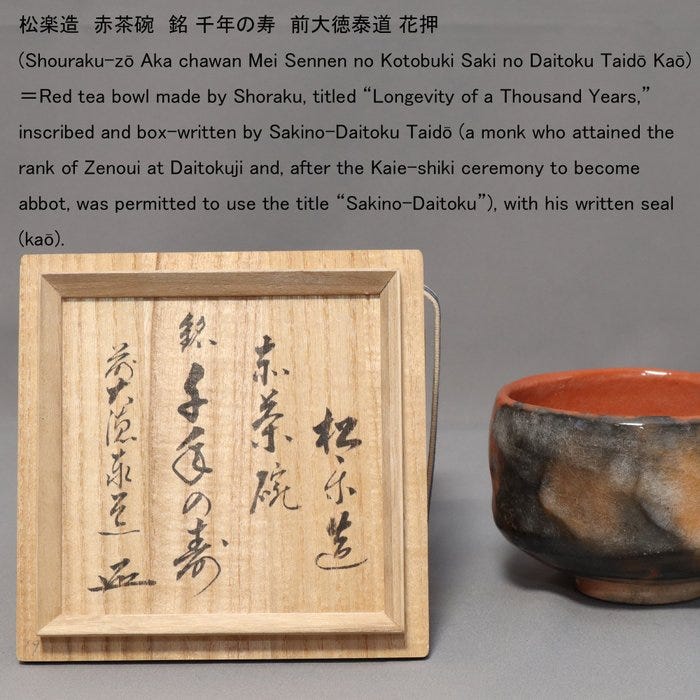 松楽造　赤茶碗　銘 千年の寿　前大徳泰道 花押
(Shouraku-zō Aka chawan Mei Sennen no Kotobuki Saki no Daitoku Taidō Kaō)
＝Red tea bowl made by Shoraku, titled “Longevity of a Thousand Years,”
inscribed and box-written by Sakino-Daitoku Taidō (a monk who attained the
rank of Zenoui at Daitokuji and, after the Kaie-shiki ceremony to become
abbot, was permitted to use the title “Sakino-Daitoku”), with his written seal
(kaō).
松楽造
赤茶碗
銘 千年の寿
前大徳泰道